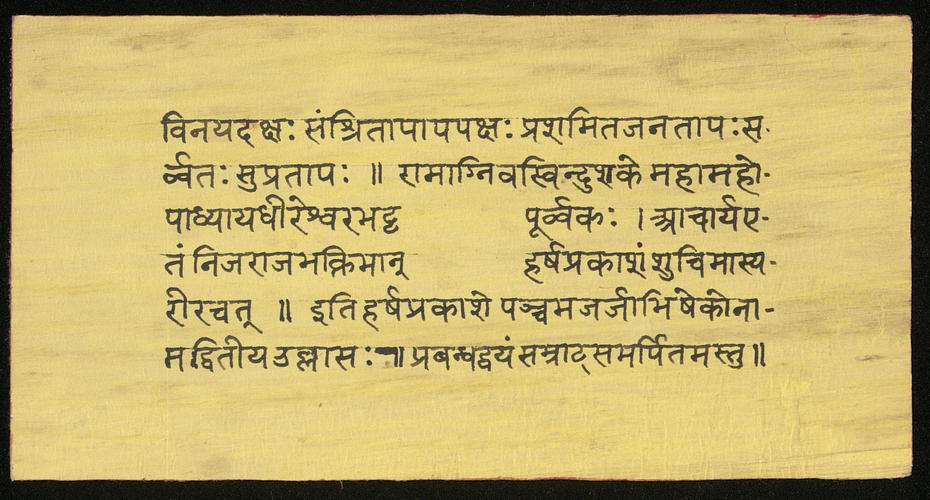 विनयदक्षः संश्रितापापपक्षः प्रशमितजनतापः स-
र्व्वतः सुप्रतापः ॥ रामाग्निवस्विन्दुशके महामहो-
पाध्यायधीरेश्वरभट्ट पूर्व्वकः । आचार्यए-
तं निजराजभक्तिमान् हर्षप्रकाशं शुचिमास्य-
रीरचत् ॥ इति हर्षप्रकाशे पञ्चमजर्जाभिषेकोना-
मद्वितीय उल्लासः ॥ प्रबन्धद्वयं सम्राट्समर्पितमस्तु ॥